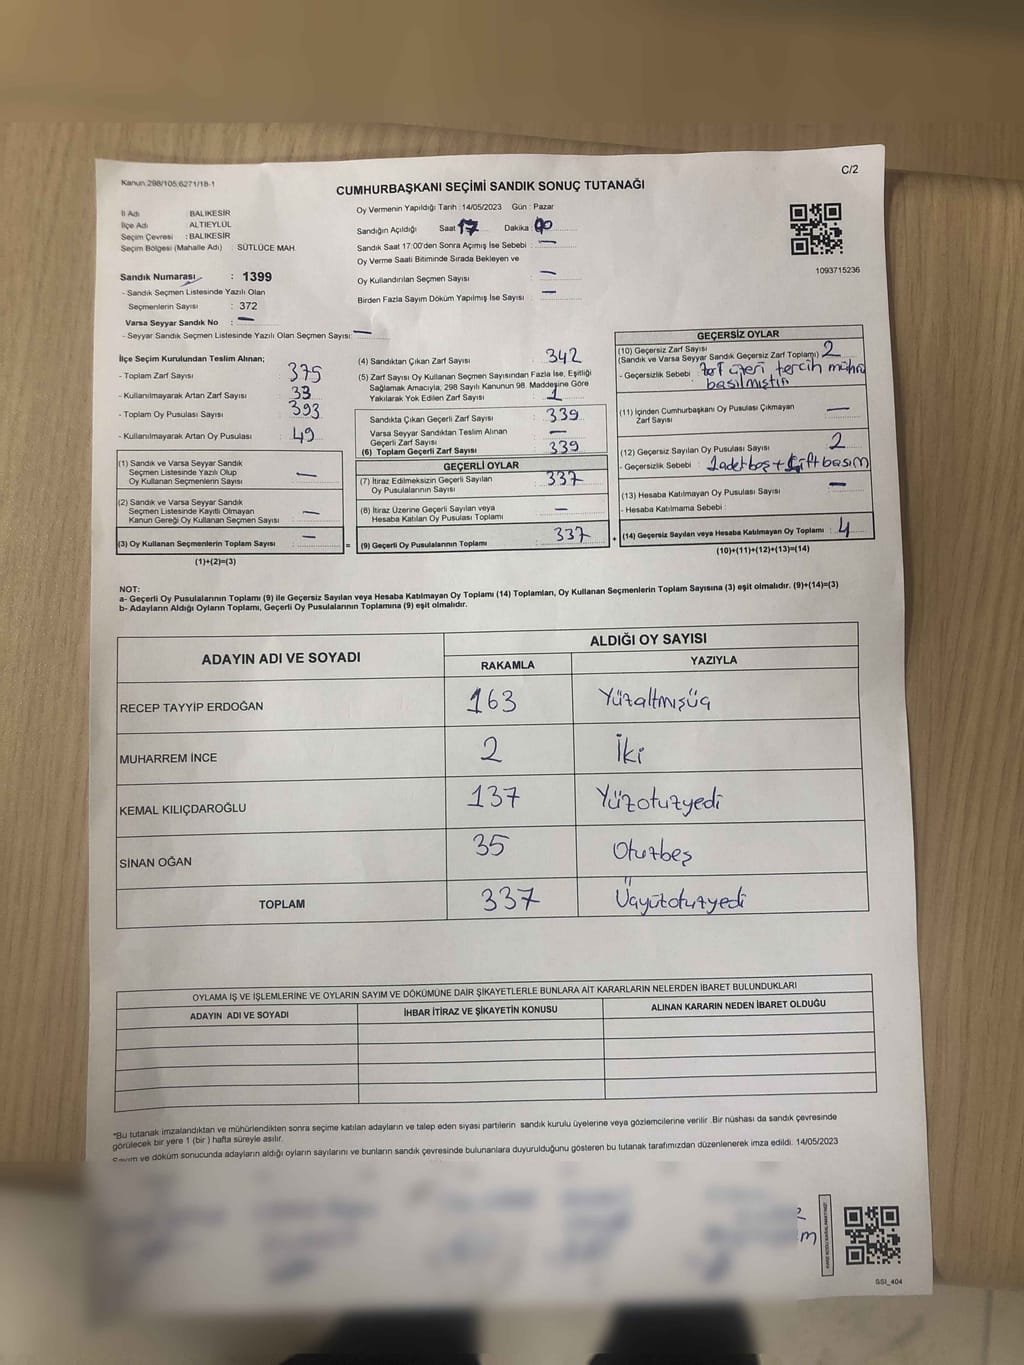 Kanun:298/105;6271/18-1
C/2
CUMHURBAŞKANI SEÇİMİ SANDIK SONUÇ TUTANAĞI
İl Adı : BALIKESİR
İlçe Adı : ALTIEYLÜL
Seçim Çevresi : BALIKESİR
Seçim Bölgesi (Mahalle Adı) : SÜTLÜCE MAH.
Sandık Numarası : 1399
- Sandık Seçmen Listesinde Yazılı Olan
Seçmenlerin Sayısı : 372
Varsa Seyyar Sandık No : —
- Seyyar Sandık Seçmen Listesinde Yazılı Olan Seçmen Sayısı: —
Oy Vermenin Yapıldığı Tarih : 14/05/2023 Gün : Pazar
Sandığın Açıldığı Saat 17 Dakika : 00
Sandık Saat 17:00'den Sonra Açımış İse Sebebi : —
Oy Verme Saati Bitiminde Sırada Bekleyen ve
Oy Kullandırılan Seçmen Sayısı : —
Birden Fazla Sayım Döküm Yapılmış İse Sayısı : —
1093715236
İlçe Seçim Kurulundan Teslim Alınan;
- Toplam Zarf Sayısı : 375
- Kullanılmayarak Artan Zarf Sayısı : 33
- Toplam Oy Pusulası Sayısı : 393
- Kullanılmayarak Artan Oy Pusulası : 49
(1) Sandık ve Varsa Seyyar Sandık
Seçmen Listesinde Yazılı Olup
Oy Kullanan Seçmenlerin Sayısı : —
(2) Sandık ve Varsa Seyyar Sandık
Seçmen Listesinde Kayıtlı Olmayan
Kanun Gereği Oy Kullanan Seçmen Sayısı : —
(3) Oy Kullanan Seçmenlerin Toplam Sayısı : —
(1)+(2)=(3)
(4) Sandıktan Çıkan Zarf Sayısı : 342
(5) Zarf Sayısı Oy Kullanan Seçmen Sayısından Fazla İse, Eşitliği
Sağlamak Amacıyla, 298 Sayılı Kanunun 98. Maddesine Göre
Yakılarak Yok Edilen Zarf Sayısı : 1
Sandıkta Çıkan Geçerli Zarf Sayısı : 339
Varsa Seyyar Sandıktan Teslim Alınan
Geçerli Zarf Sayısı : —
(6) Toplam Geçerli Zarf Sayısı : 339
GEÇERLİ OYLAR
(7) İtiraz Edilmeksizin Geçerli Sayılan
Oy Pusulalarının Sayısı : 337
(8) İtiraz Üzerine Geçerli Sayılan veya
Hesaba Katılan Oy Pusulası Toplamı : —
= (9) Geçerli Oy Pusulalarının Toplamı : 337
GEÇERSİZ OYLAR
(10) Geçersiz Zarf Sayısı : 2
(Sandık ve Varsa Seyyar Sandık Geçersiz Zarf Toplamı)
- Geçersizlik Sebebi : Zarf üzeri tercih mührü
basılmıştır
(11) İçinden Cumhurbaşkanı Oy Pusulası Çıkmayan
Zarf Sayısı : —
(12) Geçersiz Sayılan Oy Pusulası Sayısı : 2
- Geçersizlik Sebebi : 1 adet boş + Çift basım
(13) Hesaba Katılmayan Oy Pusulası Sayısı : —
- Hesaba Katılmama Sebebi :
+ (14) Geçersiz Sayılan veya Hesaba Katılmayan Oy Toplamı : 4
(10)+(11)+(12)+(13)=(14)
NOT:
a- Geçerli Oy Pusulalarının Toplamı (9) ile Geçersiz Sayılan veya Hesaba Katılmayan Oy Toplamı (14) Toplamları, Oy Kullanan Seçmenlerin Toplam Sayısına (3) eşit olmalıdır. (9)+(14)=(3)
b- Adayların Aldığı Oyların Toplamı, Geçerli Oy Pusulalarının Toplamına (9) eşit olmalıdır.
ADAYIN ADI VE SOYADI
ALDIĞI OY SAYISI
RAKAMLA YAZIYLA
RECEP TAYYİP ERDOĞAN 163 Yüzaltmışüç
MUHARREM İNCE 2 İki
KEMAL KILIÇDAROĞLU 137 Yüzotuzyedi
SİNAN OĞAN 35 Otuzbeş
TOPLAM 337 Üçyüzotuzyedi
OYLAMA İŞ VE İŞLEMLERİNE VE OYLARIN SAYIM VE DÖKÜMÜNE DAİR ŞİKAYETLERLE BUNLARA AİT KARARLARIN NELERDEN İBARET BULUNDUKLARI
ADAYIN ADI VE SOYADI İHBAR İTİRAZ VE ŞİKAYETİN KONUSU ALINAN KARARIN NEDEN İBARET OLDUĞU
*Bu tutanak imzalandıktan ve mühürlendikten sonra seçime katılan adayların ve talep eden siyasi partilerin sandık kurulu üyelerine veya gözlemcilerine verilir. Bir nüshası da sandık çevresinde
görülecek bir yere 1 (bir ) hafta süreyle asılır.
Sayım ve döküm sonucunda adayların aldığı oyların sayılarını ve bunların sandık çevresinde bulunanlara duyurulduğunu gösteren bu tutanak tarafımızdan düzenlenerek imza edildi. 14/05/2023
GSI_404